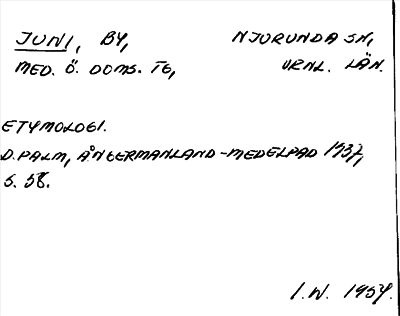 JUNI, BY, NJURUNDA SN,
MED. Ö. DOMS. TG, VRNL. LÄN.
ETYMOLOGI.
D. PALM, ÅNGERMANLAND-MEDELPAD 1937,
S. 58.
I.W. 1954.